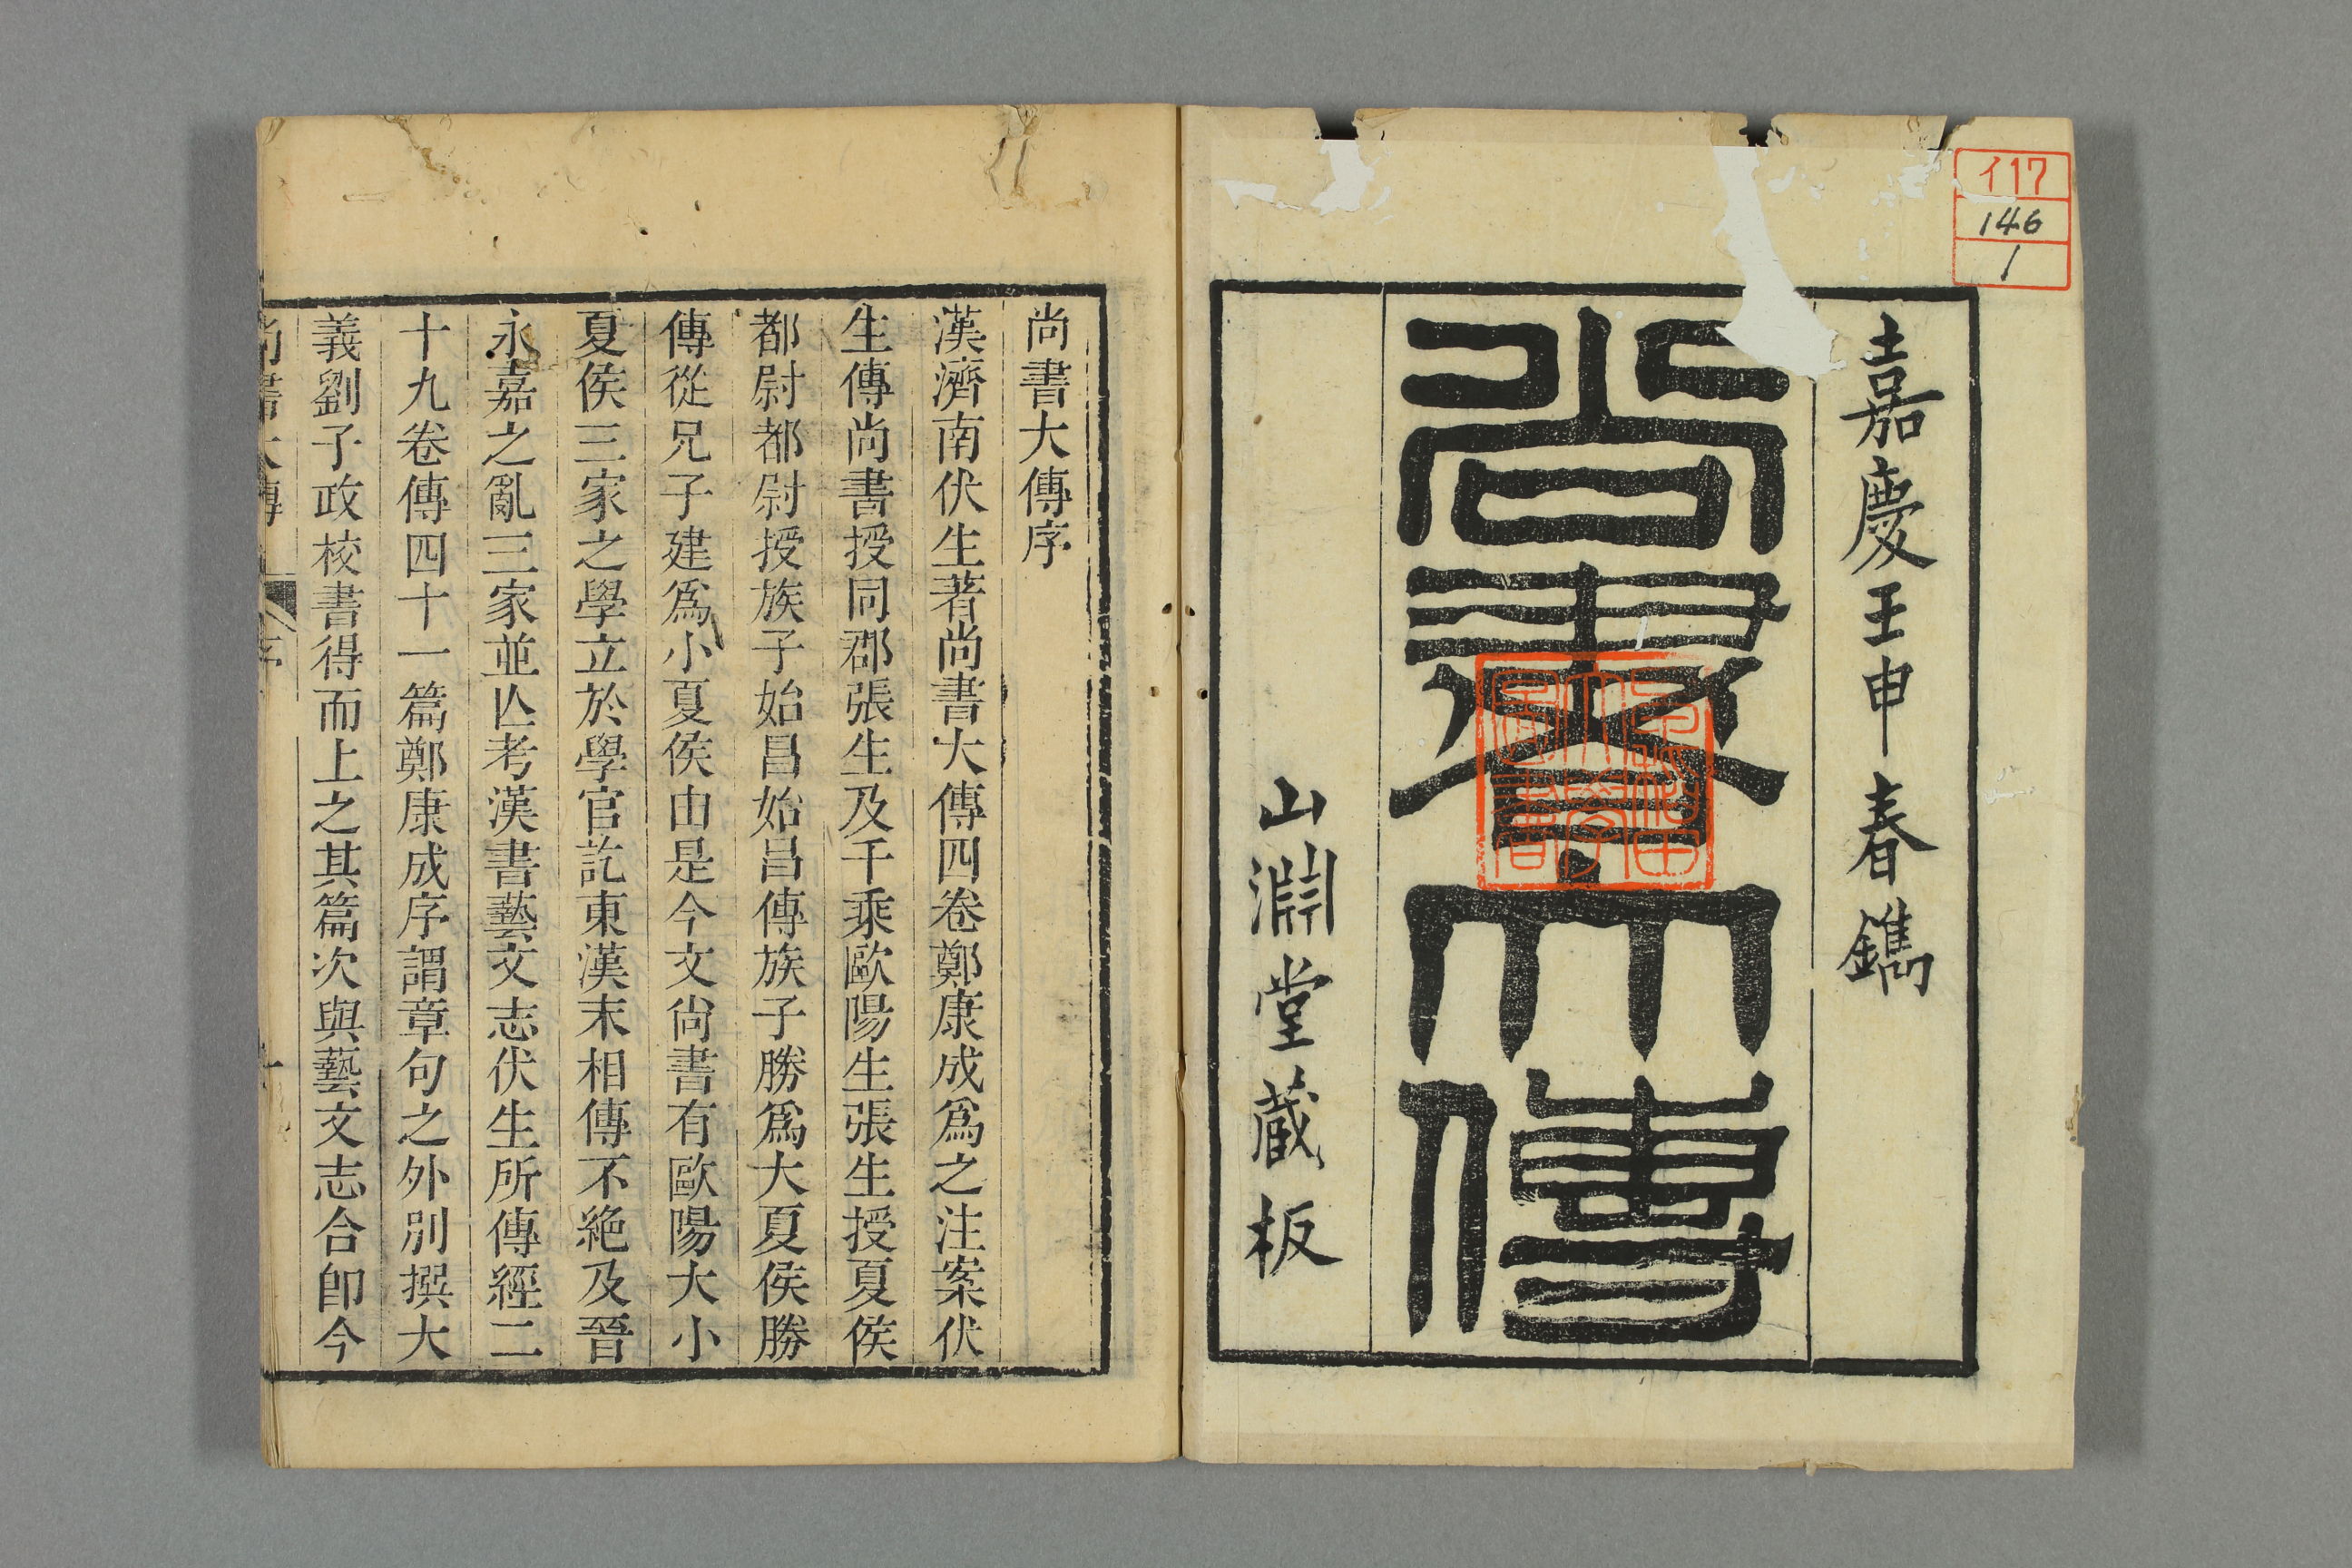 イ17
146
1
嘉慶壬申春鐫
尚書大傳
早稻田
大學
圖書
山淵堂藏板
尚書大傳序
漢濟南伏生著尚書大傳四卷鄭康成爲之注案伏
生傳尚書授同郡張生及千乘歐陽生張生授夏侯
都尉都尉授族子始昌始昌傳族子勝爲大夏侯勝
傳從兄子建爲小夏侯由是今文尚書有歐陽大小
夏侯三家之學立於學官訖東漢末相傳不絶及晉
永嘉之亂三家並亾考漢書藝文志伏生所傳經二
十九卷傳四十一篇鄭康成序謂章句之外別撰大
義劉子政校書得而上之其篇次與藝文志合卽今
尚書大傳 序 一